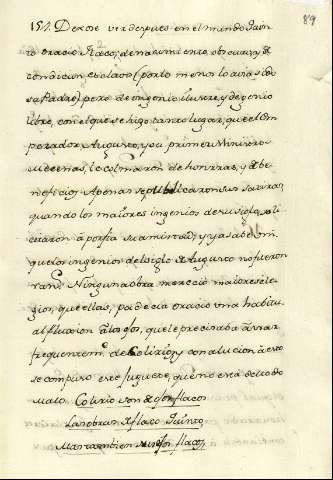 89
151. Dexose ver despues en el mundo Quin
to Oracio Flaco, de nacimiento obscuro, y de
condicion esclavo (por lo menos lo avia sido
su Padre) pero de ingenio ilustre, y de genio
libre, con el que se hizo tanto lugar, que el Em
perador Augusto, y su primer Ministro
Mecenas, le colmaron de honrras, y de be
neficios. Apenas se publicaron sus satiras,
quando los maiores ingenios de su siglo, soli
citaron à porfia su amistad, y ya sabe Vm.
que los ingenios del siglo de Augusto no fueron
ranas. Ninguna obra merecio maiores elo
gios, que ellas, padecia Oracio una habitu
al fluxion à los ojos, que le precisaba à usar
frequentemte. de Colirios, y con alusion à esto
se compuso este juguete, que no està del todo
malo. Colirio son de ojos flacos
Las obras de Flaco Quinto
Mas tambien son flacos